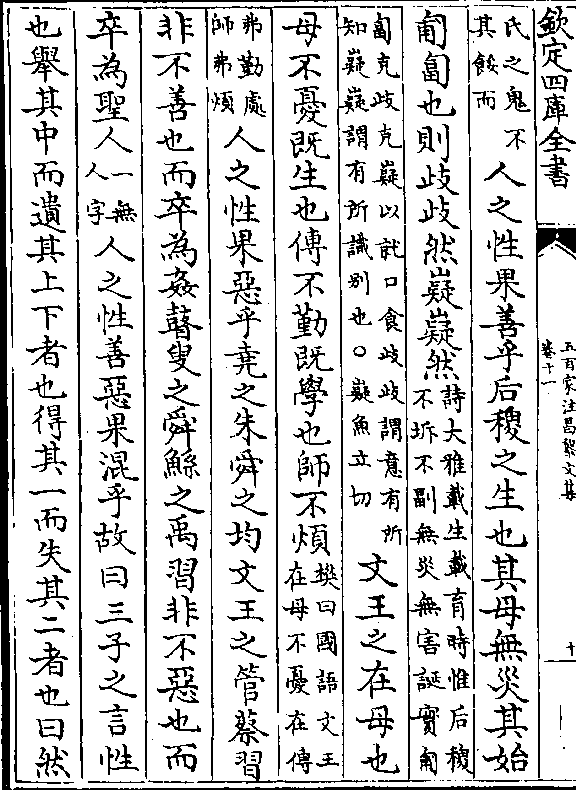 欽定四庫全書
五百家注昌黎文集
卷十一
十
氏之鬼不
其餒而
人之性果善乎后稷之生也其母無災其始
匍匐也則歧歧然嶷嶷然
詩大雅載生載育時惟后稷
不坼不副無災無害誕實匍
匐克歧克嶷以就口食歧歧謂意有所
知嶷嶷謂有所識别也○嶷魚立切
文王之在母也
母不憂既生也傅不勤既學也師不煩
樊曰國語文王
在母不憂在傅
弗勤處
師弗煩
人之性果惡乎堯之朱舜之均文王之管蔡習
非不善也而卒為姦瞽叟之舜鯀之禹習非不惡也而
卒為聖人
一無
人字
人之性善惡果混乎故曰三子之言性
也舉其中而遺其上下者也得其一而失其二者也曰然